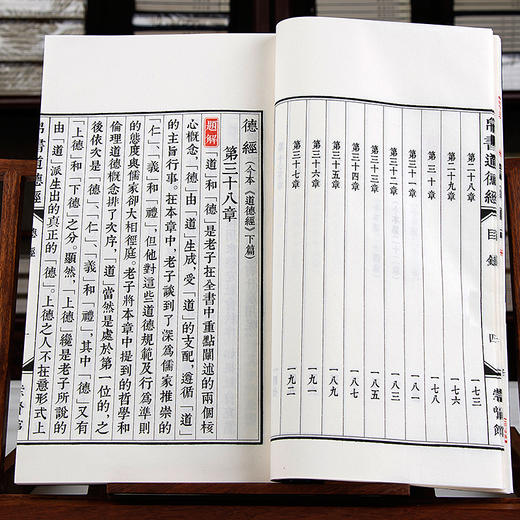 帛書道德經 目録 四 崇賢館
第二十八章 一七三
第二十九章 一七六
第三十章 一七八
第三十一章 一八一
第三十二章 一八三
第三十三章 一八五
第三十四章 一八八
第三十五章 一八九
第三十六章 一九一
第三十七章 一九二
德經（今本《道德經》下篇）
第三十八章
題解 「道」和「德」是老子在全書中重點闡述的兩個核
心概念。「德」由「道」生成，受「道」的支配，遵循「道」
的主旨行事。在本章中，老子談到了深爲儒家推崇的
「仁」、「義」和「禮」，但他對這些道德規範及行爲準則
的態度與儒家卻大相徑庭。老子將本章中提到的哲學和
倫理道德概念排了次序，「道」當然是處於第一位的，之
後依次是「德」、「仁」、「義」和「禮」，其中「德」又有
「上德」和「下德」之分。顯然，「上德」纔是老子所説的
由「道」派生出的真正的「德」。上德之人不在意形式上
帛書道德經 德經